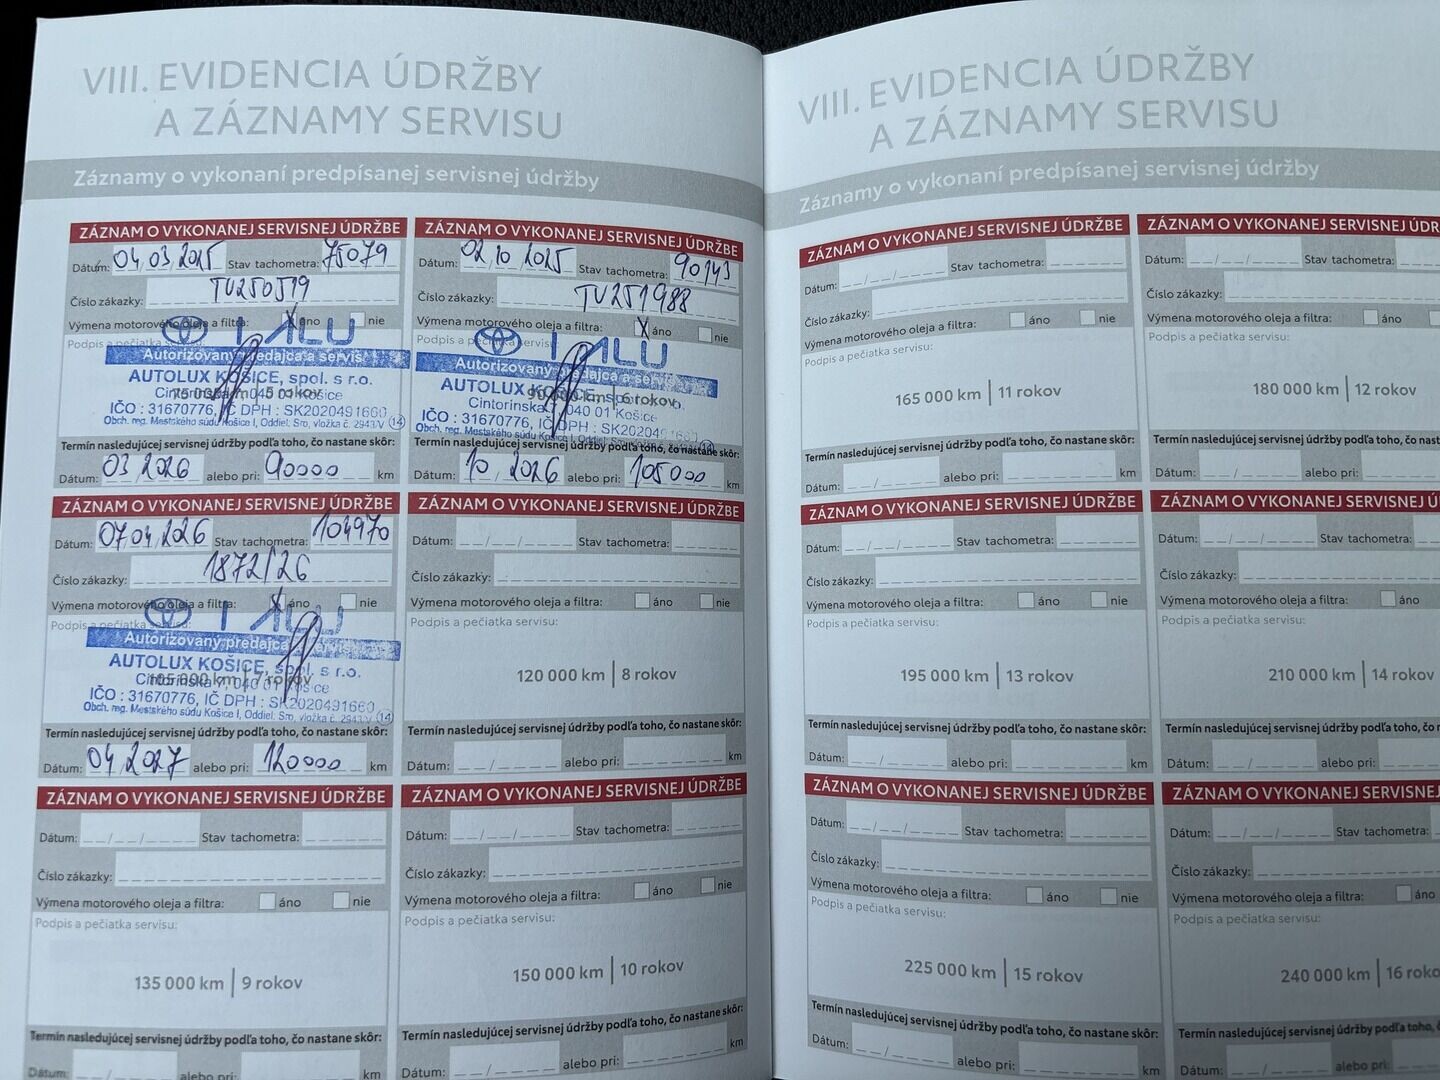 VIII. EVIDENCIA ÚDRŽBY
A ZÁZNAMY SERVISU
Záznamy o vykonaní predpísanej servisnej údržby
ZÁZNAM O VYKONANEJ SERVISNEJ ÚDRŽBE
Dátum: 04/03/2025 Stav tachometra: 75079
Číslo zákazky: TU250519
Výmena motorového oleja a filtra: X áno nie
Podpis a pečiatka servisu:
I ALU
Autorizovaný predajca a servis
AUTOLUX KOŠICE, spol. s r.o.
Cintorínska 7, 040 01 Košice
75 000 km | 5 rokov
IČO : 31670776, IČ DPH : SK2020491660
Obch. reg. Mestského súdu Košice I, Oddiel. Sro, vložka č. 2943/V 14
Termín nasledujúcej servisnej údržby podľa toho, čo nastane skôr:
Dátum: 03/2026 alebo pri: 90000 km
ZÁZNAM O VYKONANEJ SERVISNEJ ÚDRŽBE
Dátum: 02/10/2025 Stav tachometra: 90143
Číslo zákazky: TU251988
Výmena motorového oleja a filtra: X áno nie
Podpis a pečiatka servisu:
I ALU
Autorizovaný predajca a servis
AUTOLUX KOŠICE, spol. s r.o.
Cintorínska 7, 040 01 Košice
90 000 km | 6 rokov
IČO : 31670776, IČ DPH : SK2020491660
Obch. reg. Mestského súdu Košice I, Oddiel. Sro, 14
Termín nasledujúcej servisnej údržby podľa toho, čo nastane skôr:
Dátum: 10/2026 alebo pri: 105000 km
ZÁZNAM O VYKONANEJ SERVISNEJ ÚDRŽBE
Dátum: 07/04/2026 Stav tachometra: 104970
Číslo zákazky: 1872/26
Výmena motorového oleja a filtra: X áno nie
Podpis a pečiatka servisu:
I ALU
Autorizovaný predajca a servis
AUTOLUX KOŠICE, spol. s r.o.
Cintorínska 7, 040 01 Košice
105 000 km | 7 rokov
IČO : 31670776, IČ DPH : SK2020491660
Obch. reg. Mestského súdu Košice I, Oddiel. Sro, vložka č. 2943/V 14
Termín nasledujúcej servisnej údržby podľa toho, čo nastane skôr:
Dátum: 04/2027 alebo pri: 120000 km
ZÁZNAM O VYKONANEJ SERVISNEJ ÚDRŽBE
Dátum: __/__/____ Stav tachometra:
Číslo zákazky:
Výmena motorového oleja a filtra: áno nie
Podpis a pečiatka servisu:
120 000 km | 8 rokov
Termín nasledujúcej servisnej údržby podľa toho, čo nastane skôr:
Dátum: __/____ alebo pri: km
ZÁZNAM O VYKONANEJ SERVISNEJ ÚDRŽBE
Dátum: __/__/____ Stav tachometra:
Číslo zákazky:
Výmena motorového oleja a filtra: áno nie
Podpis a pečiatka servisu:
135 000 km | 9 rokov
Termín nasledujúcej servisnej údržby podľa toho, čo nastane skôr:
Dátum: __/____ alebo pri: km
ZÁZNAM O VYKONANEJ SERVISNEJ ÚDRŽBE
Dátum: __/__/____ Stav tachometra:
Číslo zákazky:
Výmena motorového oleja a filtra: áno nie
Podpis a pečiatka servisu:
150 000 km | 10 rokov
Termín nasledujúcej servisnej údržby podľa toho, čo nastane skôr:
Dátum: __/____ alebo pri: km
VIII. EVIDENCIA ÚDRŽBY
A ZÁZNAMY SERVISU
Záznamy o vykonaní predpísanej servisnej údržby
ZÁZNAM O VYKONANEJ SERVISNEJ ÚDRŽBE
Dátum: __/__/____ Stav tachometra:
Číslo zákazky:
Výmena motorového oleja a filtra: áno nie
Podpis a pečiatka servisu:
165 000 km | 11 rokov
Termín nasledujúcej servisnej údržby podľa toho, čo nastane skôr:
Dátum: __/____ alebo pri: km
ZÁZNAM O VYKONANEJ SERVISNEJ ÚDR
Dátum: __/__/____ Stav tachometra:
Číslo zákazky:
Výmena motorového oleja a filtra: áno
Podpis a pečiatka servisu:
180 000 km | 12 rokov
Termín nasledujúcej servisnej údržby podľa toho, čo nast
Dátum: __/____ alebo pri:
ZÁZNAM O VYKONANEJ SERVISNEJ ÚDRŽBE
Dátum: __/__/____ Stav tachometra:
Číslo zákazky:
Výmena motorového oleja a filtra: áno nie
Podpis a pečiatka servisu:
195 000 km | 13 rokov
Termín nasledujúcej servisnej údržby podľa toho, čo nastane skôr:
Dátum: __/____ alebo pri: km
ZÁZNAM O VYKONANEJ SERVISNEJ Ú
Dátum: __/__/____ Stav tachometra:
Číslo zákazky:
Výmena motorového oleja a filtra: áno
Podpis a pečiatka servisu:
210 000 km | 14 rokov
Termín nasledujúcej servisnej údržby podľa toho, čo n
Dátum: __/____ alebo pri:
ZÁZNAM O VYKONANEJ SERVISNEJ ÚDRŽBE
Dátum: __/__/____ Stav tachometra:
Číslo zákazky:
Výmena motorového oleja a filtra: áno nie
Podpis a pečiatka servisu:
225 000 km | 15 rokov
Termín nasledujúcej servisnej údržby podľa toho, čo nastane skôr:
Dátum: __/____ alebo pri: km
ZÁZNAM O VYKONANEJ SERVISNEJ
Dátum: __/__/____ Stav tachometra:
Číslo zákazky:
Výmena motorového oleja a filtra: áno
Podpis a pečiatka servisu:
240 000 km | 16 roko
Termín nasledujúcej servisnej údržby podľa toho, čo
Dátum: __/____ alebo pri: